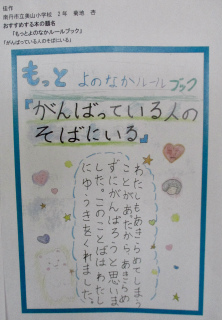 佳作
南丹市立美山小学校 2年 菊地 杏
おすすめする本の題名
「もっとよのなかルールブック」
「がんばっている人のそばにいる」
もっと よのなかルール ブック
『がんばっている人の
そばにいる』
わたしもあきらめてしまう
ことがあたから、あきらめ
ずにがんばろうと思いま
した。このことばは、わたし
にゆうきをくれました。